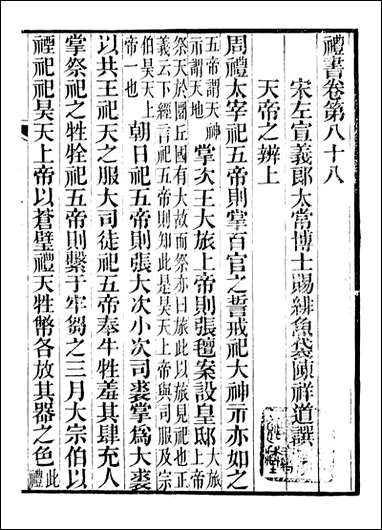 禮書卷第八十八
宋左宣義郎太常博士賜緋魚袋陳祥道譔
天帝之辨上
周禮太宰祀五帝則掌百官之誓戒祀大神示亦如之
五帝謂天神示謂天地掌次王大旅上帝則張氊案設皇邸大旅
祭天於圜丘國有大故而祭亦曰旅此以旅見祀也正義云下經言祀五帝則知此是昊天上帝與司服及宗
伯昊天上帝一也朝日祀五帝則張大次小次司裘掌為大裘
以共王祀天之服大司徒祀五帝奉牛牲羞其肆充人
掌祭祀之牲牷祀五帝則繫于牢芻之三月大宗伯以
禋祀祀昊天上帝以蒼璧禮天牲幣各放其器之色此禮